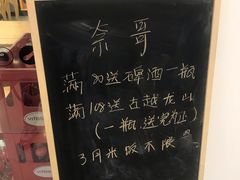 奈哥
满90送啤酒一瓶
满168送古越龙山
(一瓶送完为止)
3月米饭不限